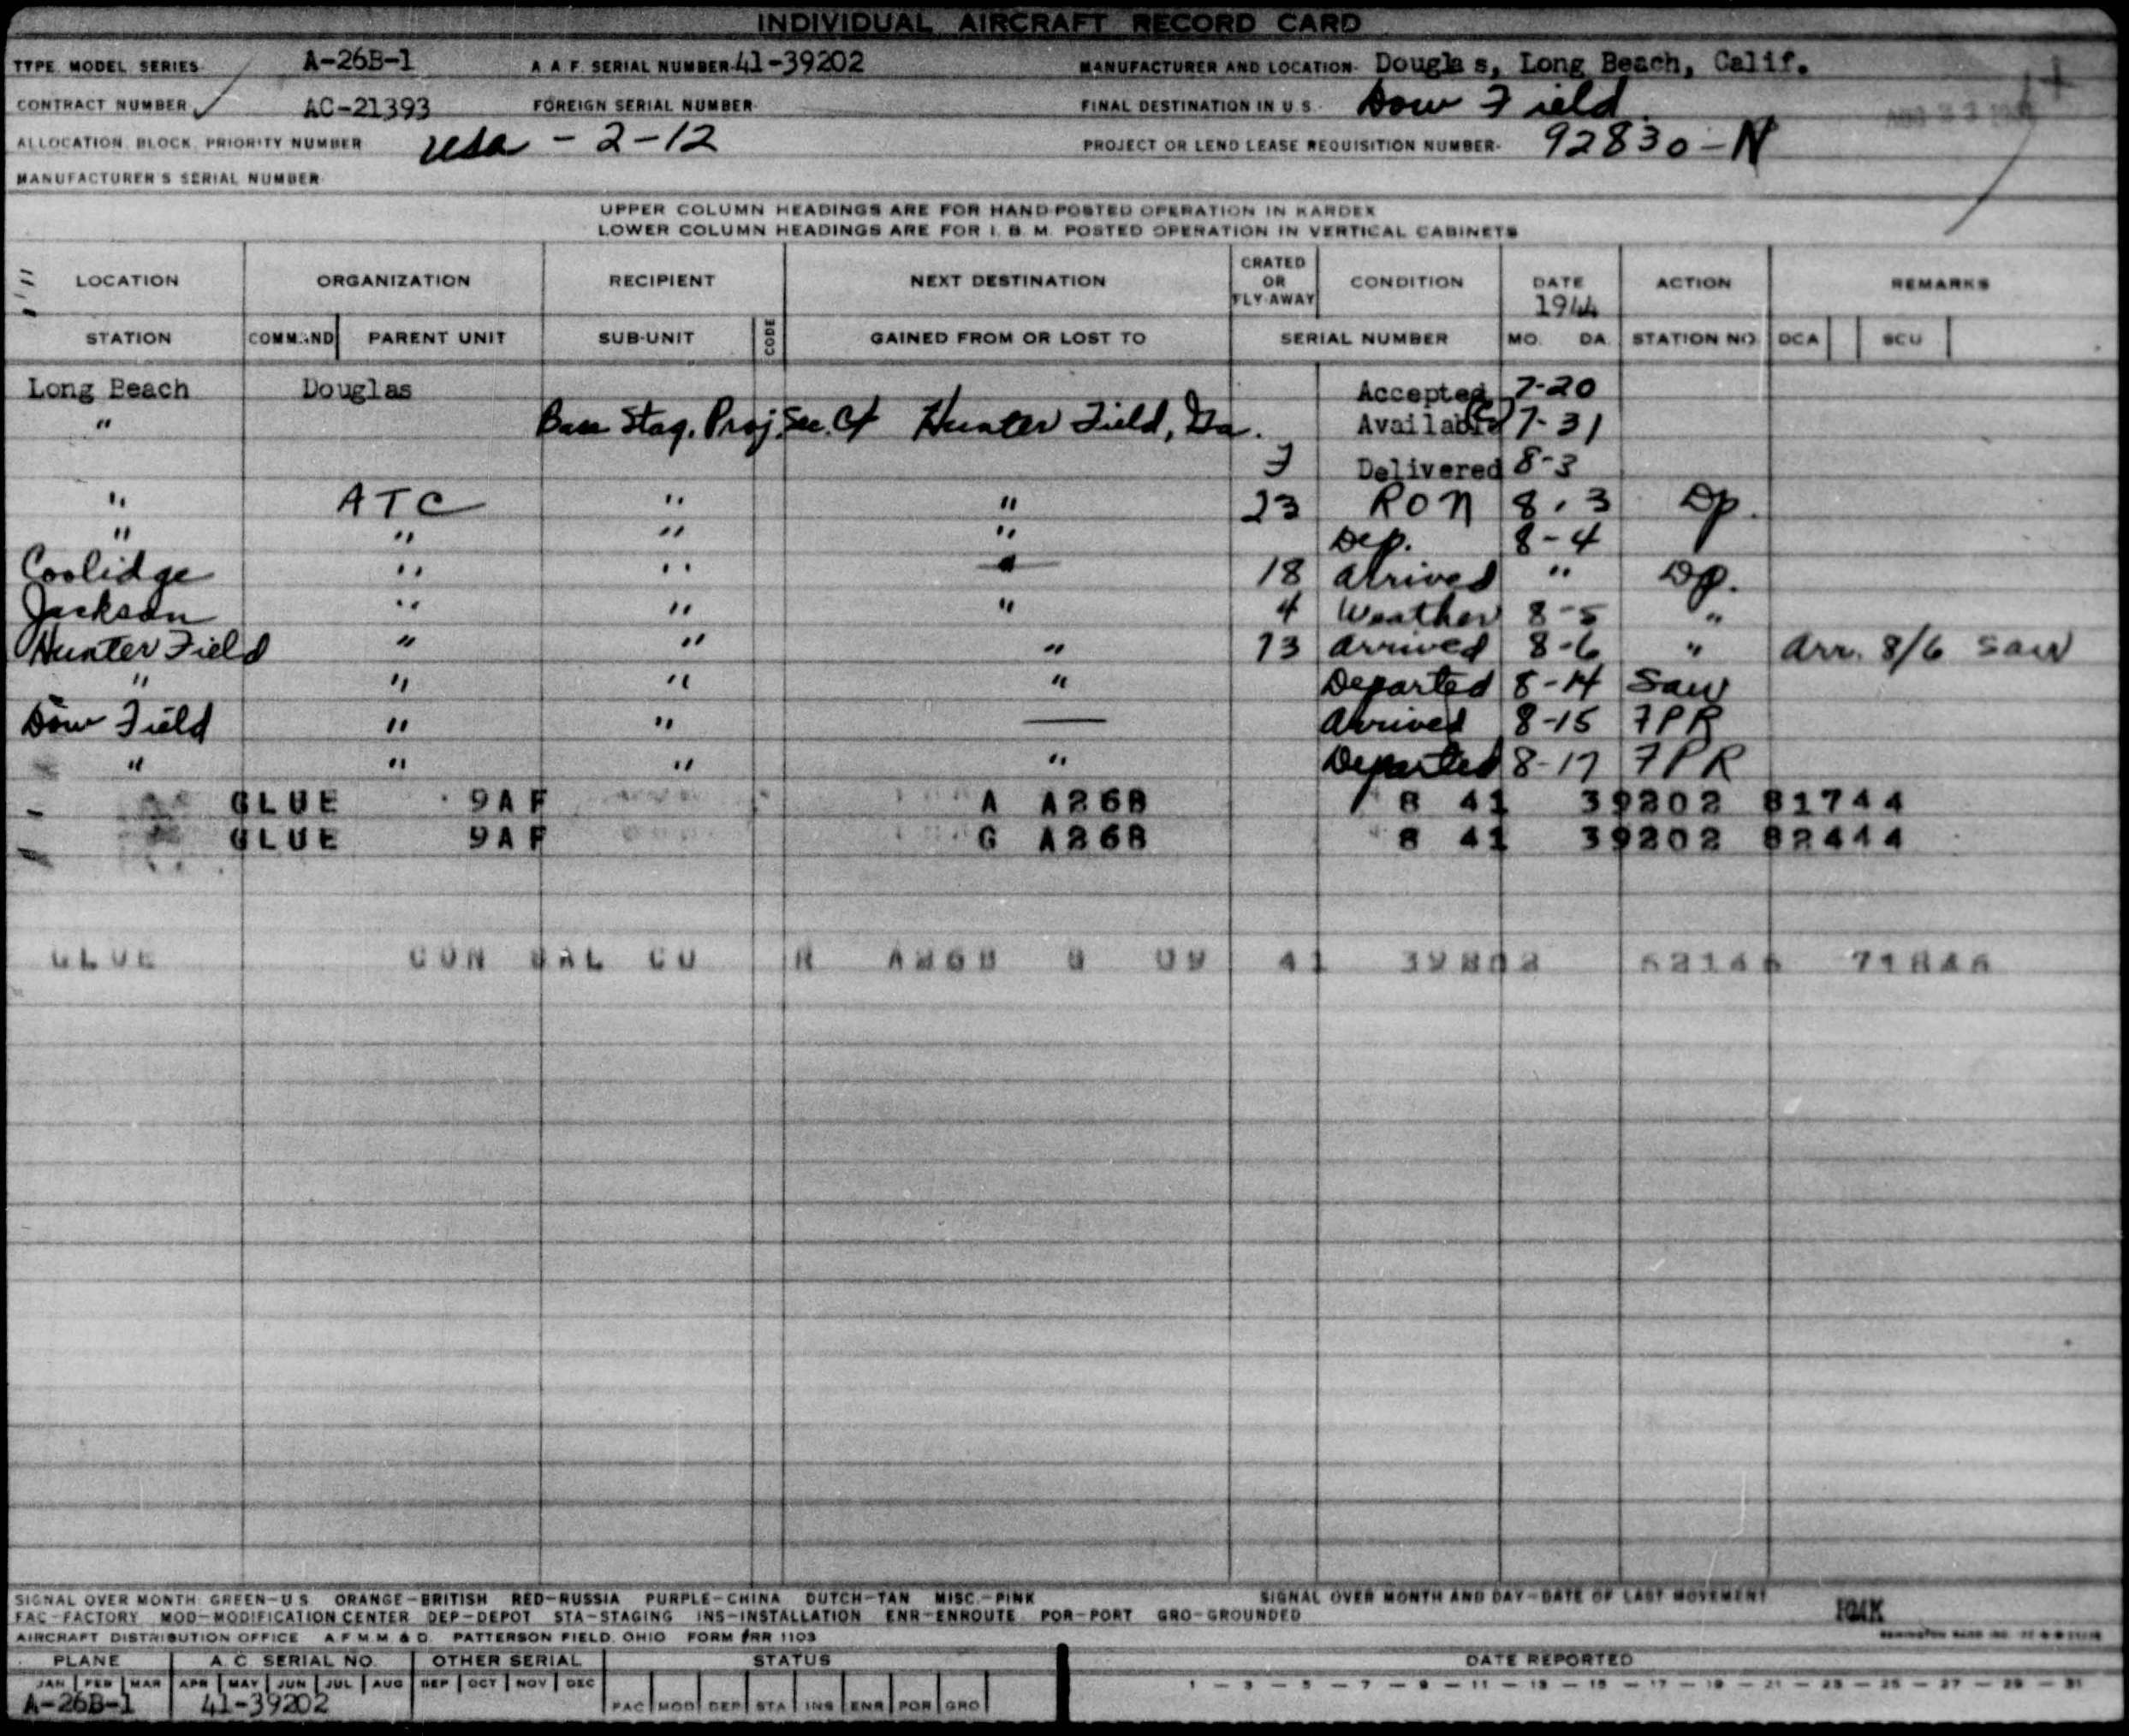 INDIVIDUAL AIRCRAFT RECORD CARD
TYPE MODEL SERIES A-26B-1 A.A.F. SERIAL NUMBER 41-39202 MANUFACTURER AND LOCATION Douglas, Long Beach, Calif.
CONTRACT NUMBER AC-21393 FOREIGN SERIAL NUMBER FINAL DESTINATION IN U.S. Dow Field
ALLOCATION BLOCK PRIORITY NUMBER usa - 2-12 PROJECT OR LEND LEASE REQUISITION NUMBER- 92830-N
MANUFACTURER'S SERIAL NUMBER
UPPER COLUMN HEADINGS ARE FOR HAND-POSTED OPERATION IN KARDEX
LOWER COLUMN HEADINGS ARE FOR I. B. M. POSTED OPERATION IN VERTICAL CABINETS
LOCATION ORGANIZATION RECIPIENT NEXT DESTINATION CRATED OR FLY-AWAY CONDITION DATE 1944 ACTION REMARKS
STATION COMMAND PARENT UNIT SUB-UNIT CODE GAINED FROM OR LOST TO SERIAL NUMBER MO. DA. STATION NO. DCA SCU
Long Beach Douglas Accepted 7-20
" Base Stag. Proj. Sec. Hunter Field, Ga. Available 7-31
F Delivered 8-3
" ATC " " 23 RON 8-3 Dp.
" " " " Dep. 8-4
Coolidge " " 18 Arrived " Dp.
Jackson " " " 4 Weather 8-5 "
Hunter Field " " " 73 Arrived 8-6 " Arr. 8/6 saw
" " " " Departed 8-14 Saw
Dow Field " " — Arrived 8-15 FPR
" " " " Departed 8-17 FPR
GLUE 9AF A A26B 8 41 39202 81744
GLUE 9AF G A26B 8 41 39202 82444
GLUE CON SAL CU R A26B 8 09 41 39202 71846
SIGNAL OVER MONTH: GREEN-U.S. ORANGE-BRITISH RED-RUSSIA PURPLE-CHINA DUTCH-TAN MISC.-PINK SIGNAL OVER MONTH AND DAY-DATE OF LAST MOVEMENT
FAC-FACTORY MOD-MODIFICATION CENTER DEP-DEPOT STA-STAGING INS-INSTALLATION ENR-ENROUTE POR-PORT GRO-GROUNDED
AIRCRAFT DISTRIBUTION OFFICE A.F.M.M. & D. PATTERSON FIELD, OHIO FORM #RR 1103
PLANE A.C. SERIAL NO. OTHER SERIAL STATUS DATE REPORTED
JAN FEB MAR APR MAY JUN JUL AUG SEP OCT NOV DEC 1 - 3 - 5 - 7 - 9 - 11 - 13 - 15 - 17 - 19 - 21 - 23 - 25 - 27 - 29 - 31
A-26B-1 41-39202 FAC MOD DEP STA INS ENR POR GRO